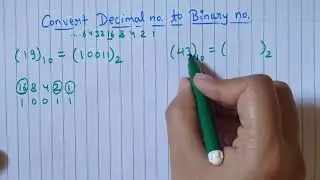 Convert Decimal no. to Binary no.
...64 32 16 8 4 2 1
(19)10 = (10011)2
(43)10 = ( )2
16 8 4 2 1
1 0 0 1 1